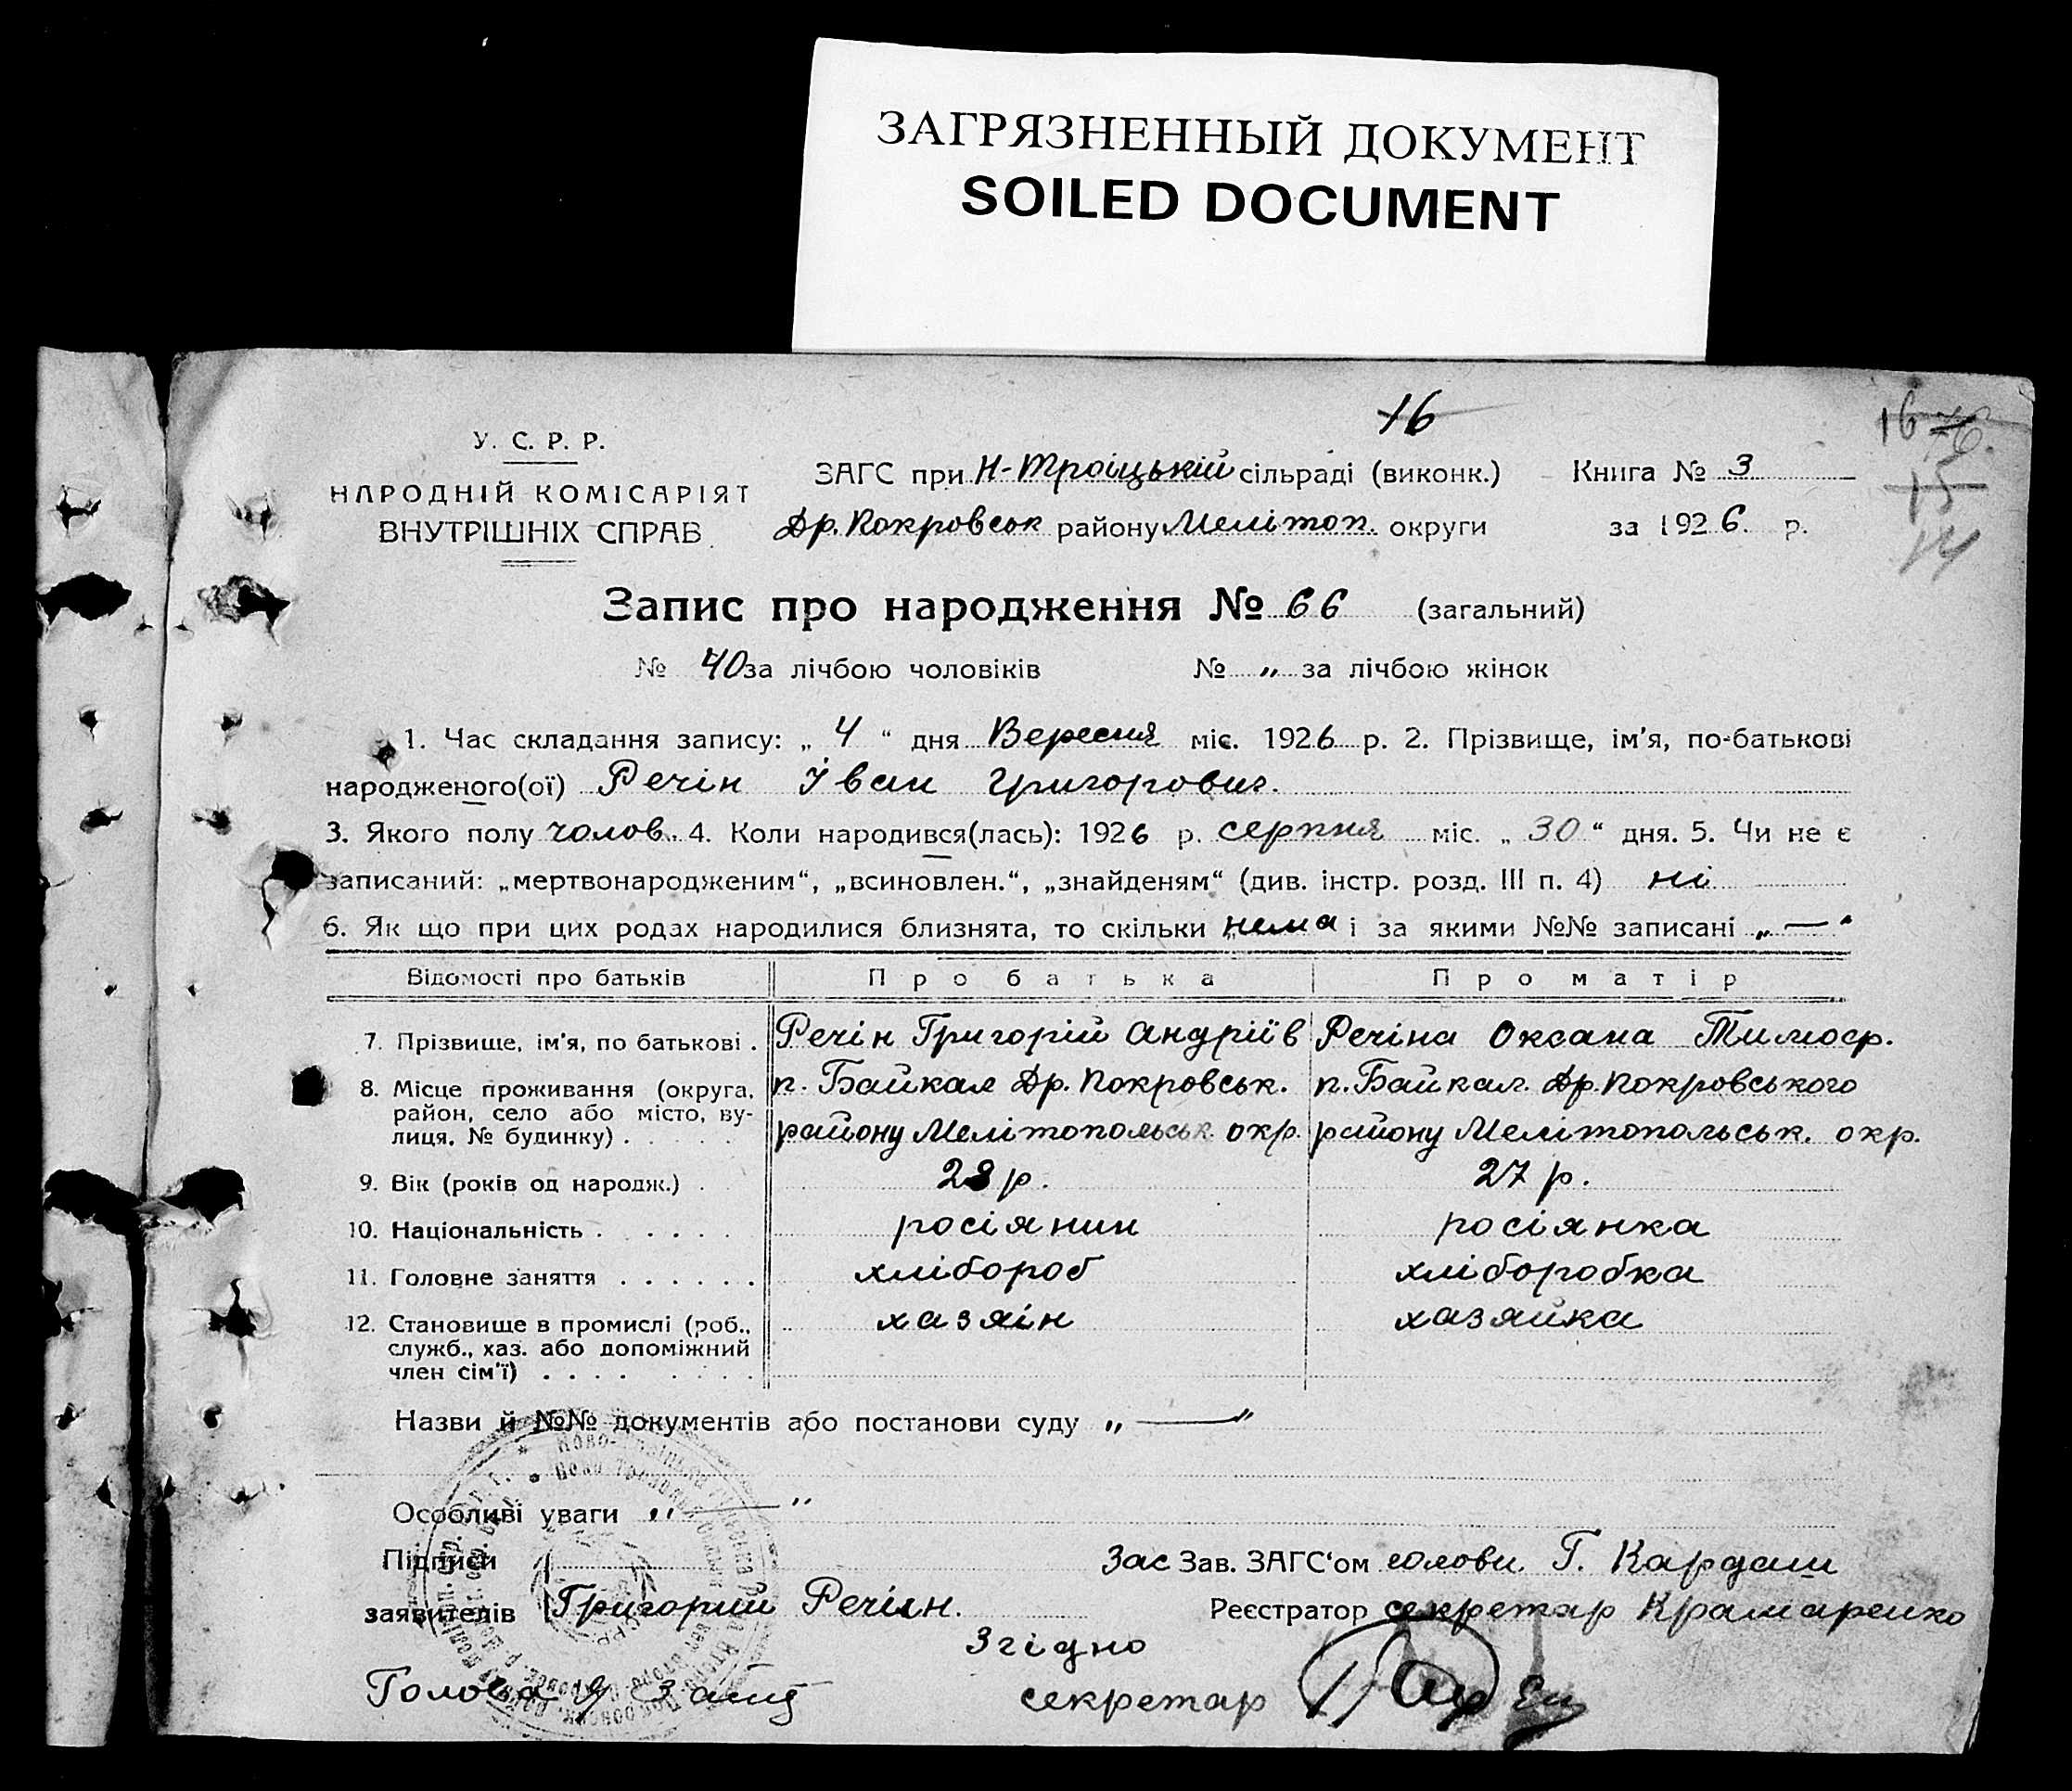 ЗАГРЯЗНЕННЫЙ ДОКУМЕНТ
SOILED DOCUMENT
16
16
15
14
У. С. Р. Р.
НАРОДНІЙ КОМІСАРІЯТ
ВНУТРІШНІХ СПРАВ
ЗАГС при Н-Троіцькій сільраді (виконк.) Книга № 3
Др. Покровськ району Мелітоп. округи за 1926. р.
Запис про народження № 66 (загальний)
№ 40 за лічбою чоловіків № „ за лічбою жінок
1. Час складання запису: „ 4 “ дня Вересня міс. 1926 р. 2. Прізвище, ім'я, по-батькові
народженого(ої) Речін Іван Григорович.
3. Якого полу чолов. 4. Коли народився(лась): 1926 р. серпня міс. „ 30 “ дня. 5. Чи не є
записаний: „мертвонародженим“, „всиновлен.“, „знайденям“ (див. інстр. розд. III п. 4) ні
6. Як що при цих родах народилися близнята, то скільки нема і за якими №№ записані „ — “
Відомості про батьків Про батька Про матір
7. Прізвище, ім'я, по батькові . Речін Григорій Андріїв Речіна Оксана Тимоф.
8. Місце проживання (округа, п. Байкал Др. Покровськ. п. Байкал. Др. Покровського
район, село або місто, ву-
лиця, № будинку) . району Мелітопольськ. окр. району Мелітопольськ. окр.
9. Вік (років од народж.) . 28 р. 27 р.
10. Національність . росіянин росіянка
11. Головне заняття . хлібороб хліборобка
12. Становище в промислі (роб., хазяїн хазяйка
служб., хаз. або допоміжний
член сім'ї) .
Назви й №№ документів або постанови суду „ — “
Особливі уваги „ — “
Підписи Зас Зав. ЗАГС'ом голови Г. Кардаш
заявителів Григорий Речин. Реєстратор секретар Крамаренко
Згідно
Голова секретар